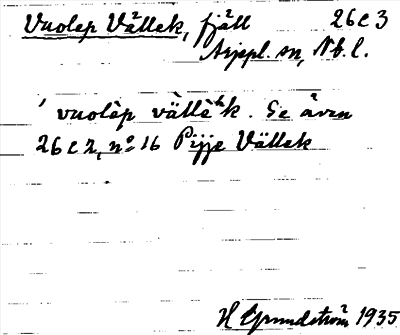 Vuolep Vällek, fjäll 26 C 3
Arjepl. sn, Nb. l.
' vuolèp vällèᵏk. Se även
26 C 2, nº 16 Pijje Vällek
H Grundström 1935